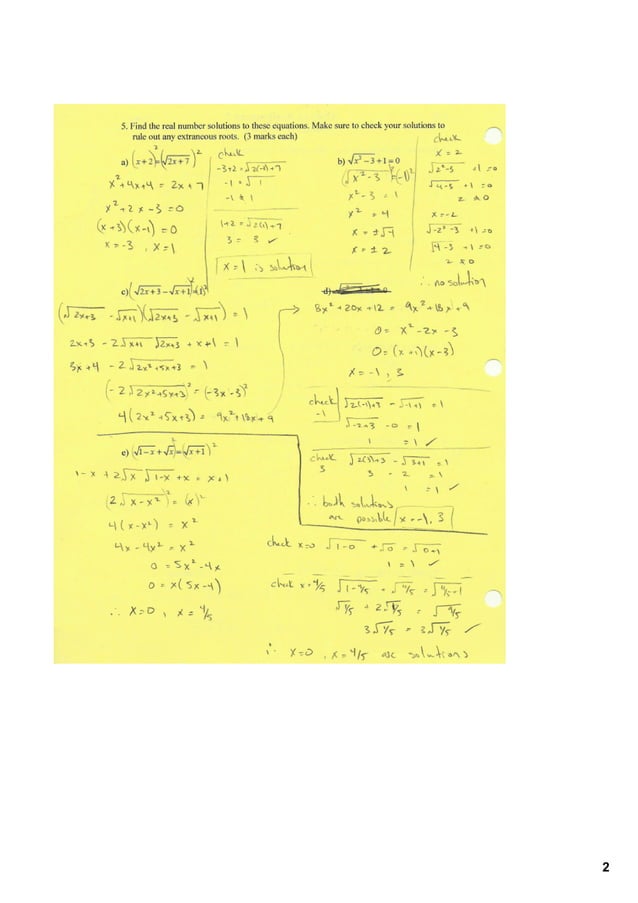 5. Find the real number solutions to these equations. Make sure to check your solutions to
rule out any extraneous roots. (3 marks each)
a) (x+2)²=(√2x+7)²
x²+4x+4 = 2x+7
x²+2x-3=0
(x+3)(x-1)=0
x=-3, x=1
check
-3+2=√2(-1)+7
-1=√1
-1≠1
1+2=√2(1)+7
3=3 ✓
x=1 is solution
b) √x²-3+1=0
(√x²-3)²=(-1)²
x²-3=1
x²=4
x=±√4
x=±2
check
x=2
√2²-3 +1=0
√4-3 +1=0
2≠0
x=-2
√-2²-3 +1=0
√4-3 +1=0
2≠0
∴ no solution
c) (√2x+3-√x+1)²=(1)²
(√2x+3 - √x+1)(√2x+3 - √x+1) = 1
2x+3 - 2√x+1 √2x+3 + x+1 = 1
3x+4 - 2√2x²+5x+3 = 1
(-2√2x²+5x+3)² = (-3x-3)²
4(2x²+5x+3) = 9x²+18x+9
d)
8x²+20x+12 = 9x²+18x+9
0=x²-2x-3
0=(x+1)(x-3)
x=-1, 3
check -1
√2(-1)+3 - √-1+1 = 1
√-2+3 - 0 = 1
1 = 1 ✓
check 3
√2(3)+3 - √3+1 = 1
3 - 2 = 1
1 = 1 ✓
∴ both solutions
are possible x=-1, 3
e) (√1-x+√x)²=(√x+1)²
1-x + 2√x √1-x +x = x+1
(2√x-x²)² = (x)²
4(x-x²) = x²
4x-4x² = x²
0=5x²-4x
0=x(5x-4)
∴ x=0, x=4/5
check x=0 √1-0 + √0 = √0+1
1=1 ✓
check x=4/5 √1-4/5 + √4/5 = √4/5-1
√1/5 + 2√1/5 = √9/5
3√1/5 = 3√1/5 ✓
∴ x=0, x=4/5 are solutions
2